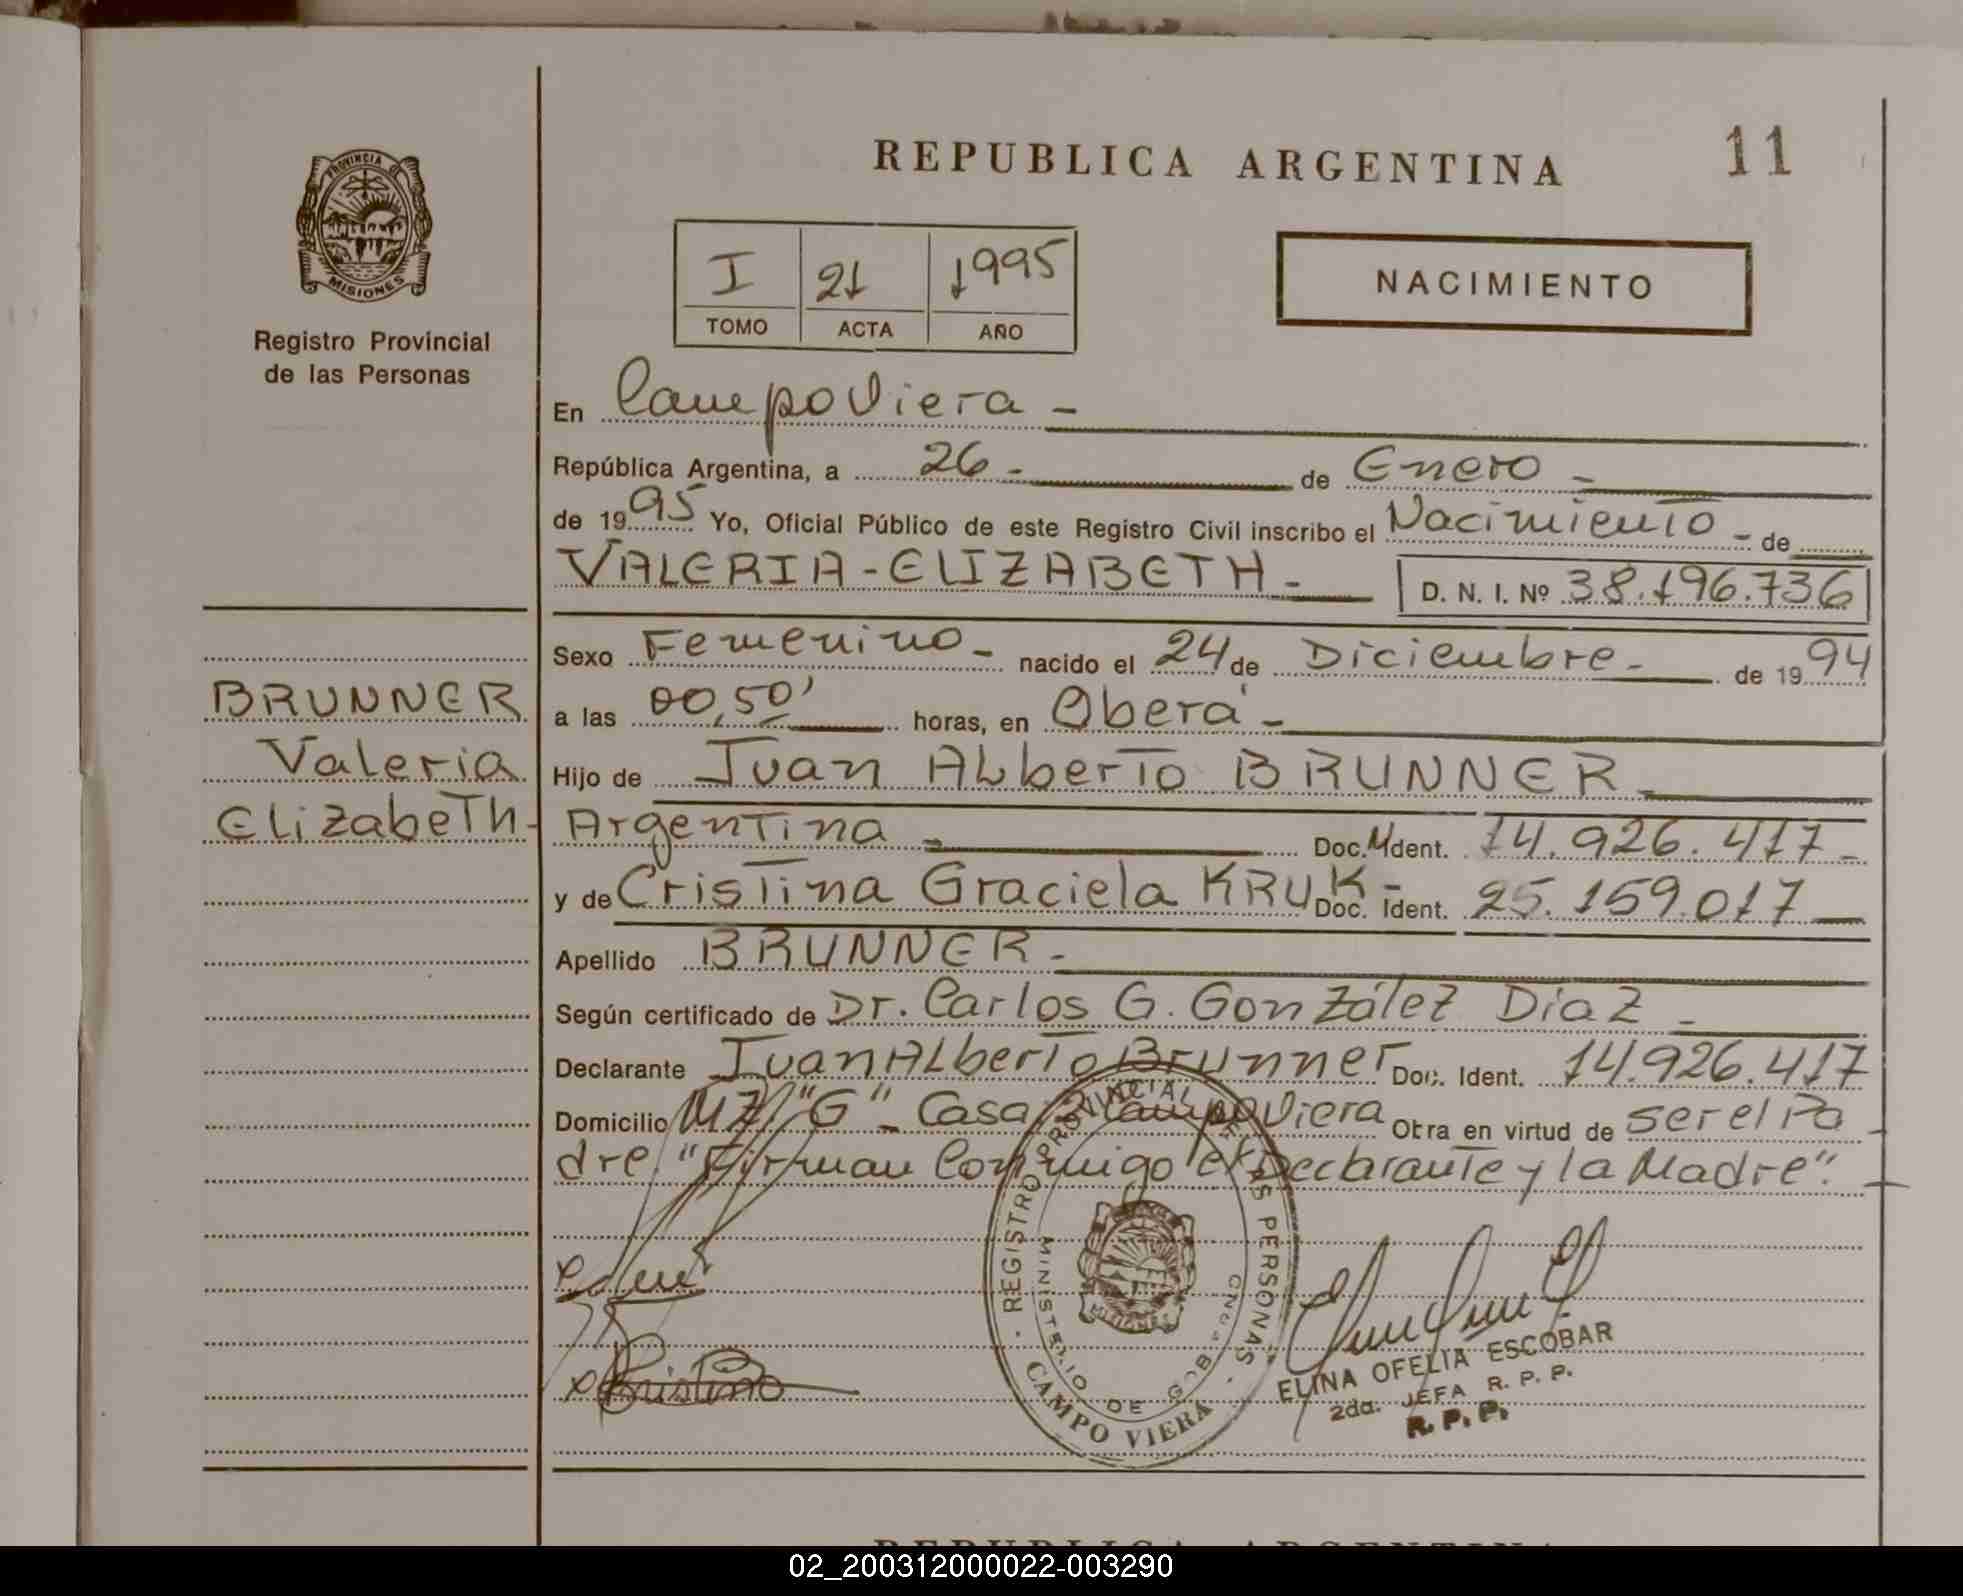 REPUBLICA ARGENTINA
11
PROVINCIA DE
MISIONES
Registro Provincial
de las Personas
I 21 1995
TOMO ACTA AÑO
NACIMIENTO
En Campo Viera -
República Argentina, a 26 - de Enero -
de 1995 Yo, Oficial Público de este Registro Civil inscribo el Nacimiento - de
VALERIA - ELIZABETH - D. N. I. Nº 38.196.736
Sexo Femenino - nacido el 24 de Diciembre - de 1994
a las 00,50' horas, en Oberá -
Hijo de Juan Alberto BRUNNER
Argentina - Doc. M Ident. 14.926.417 -
y de Cristina Graciela KRUK - Doc. Ident. 25.159.017
Apellido BRUNNER -
Según certificado de Dr. Carlos G. González Diaz -
Declarante Juan Alberto Brunner Doc. Ident. 14.926.417
Domicilio MZ "G" - Casa 2 Campo Viera Obra en virtud de ser el Pa
dre. "Firman Conmigo el Declarante y la Madre". -
BRUNNER
Valeria
Elizabeth -
REGISTRO PROVINCIAL DE LAS PERSONAS
MINISTERIO DE GOB
MISIONES
CAMPO VIERA
Cristina
ELINA OFELIA ESCOBAR
2da. JEFA R. P. P.
R. P. P.
REPUBLICA ARGENTINA
02_200312000022-003290